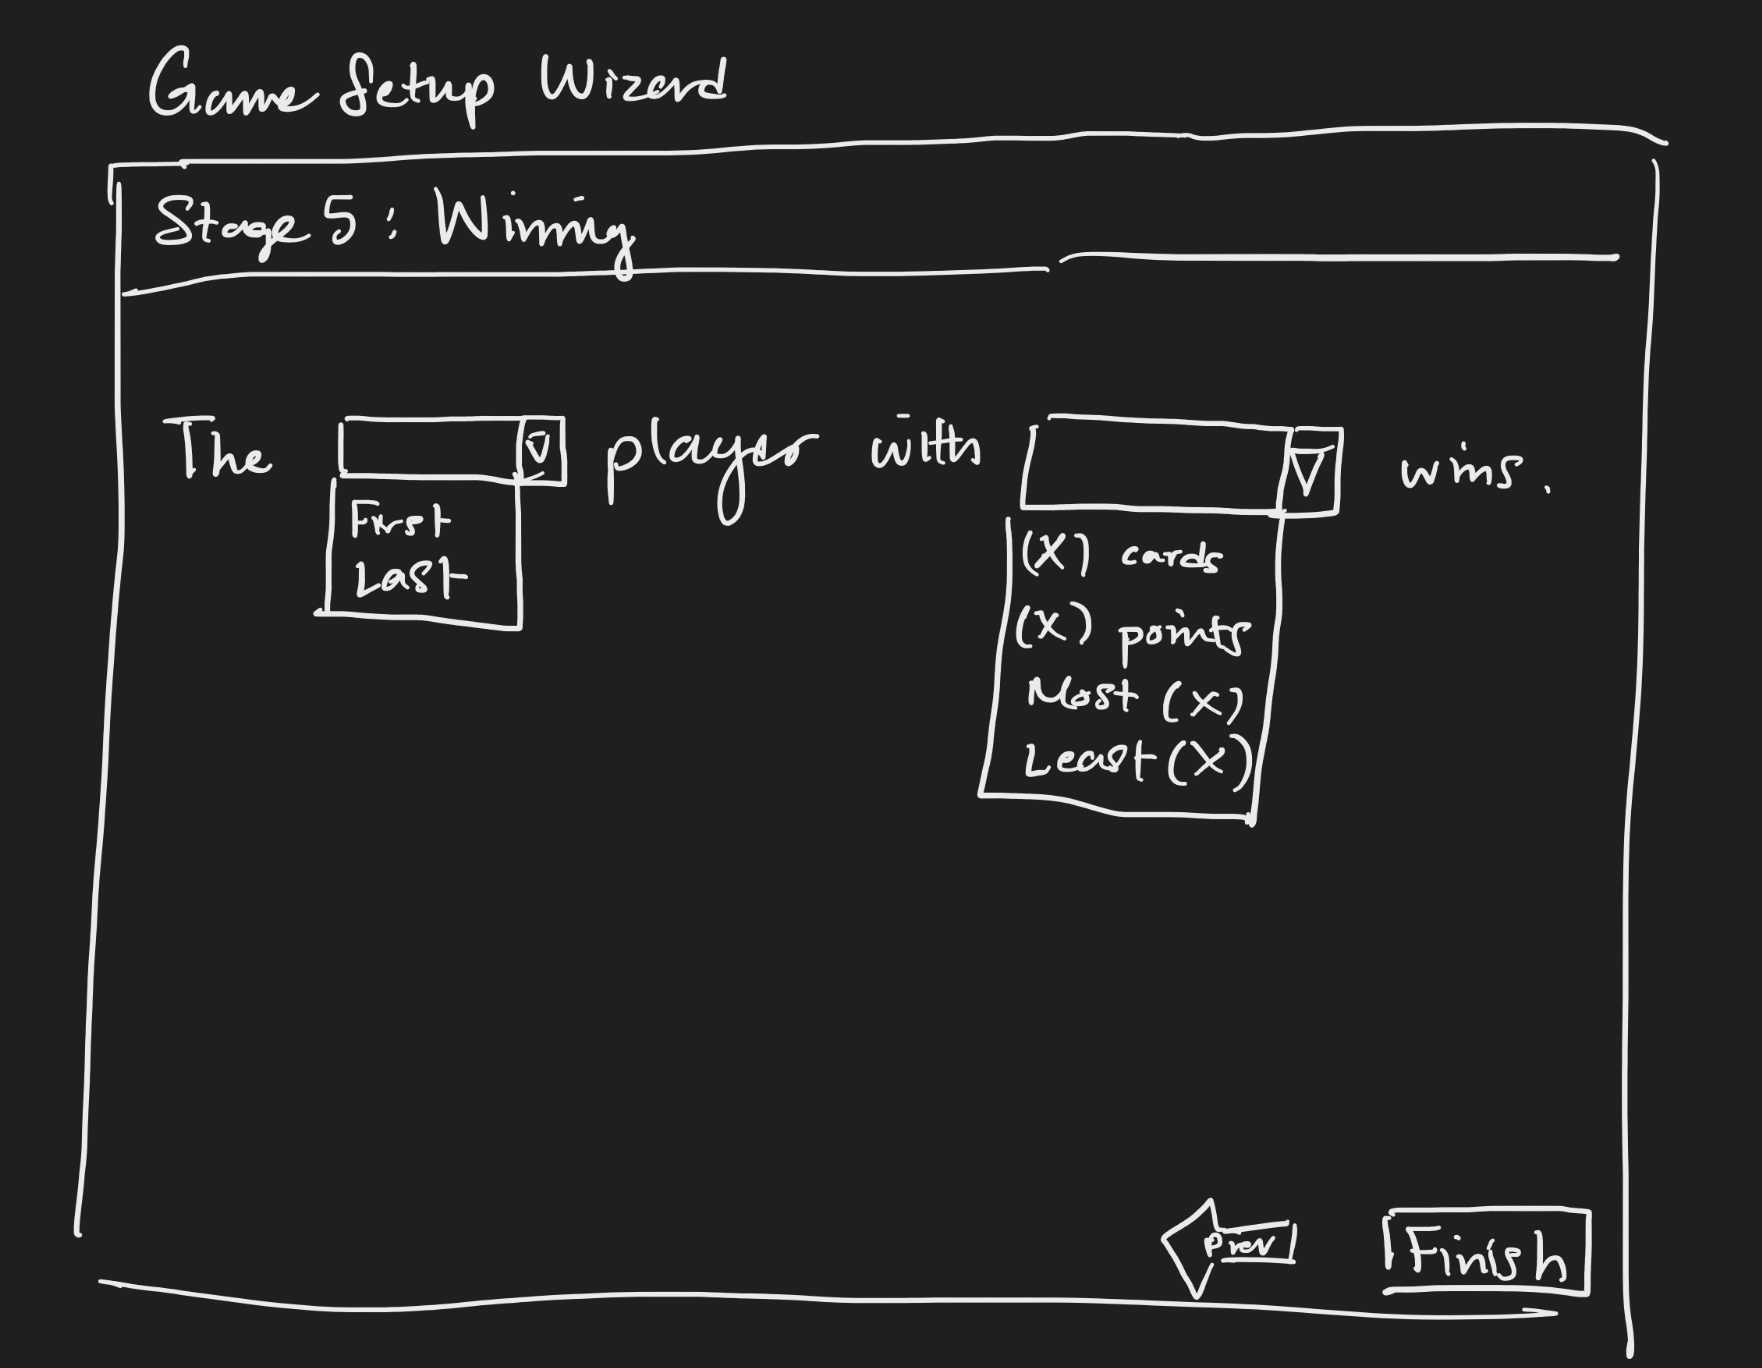 Game Setup Wizard
Stage 5: Winning
The player with wins.
First
Last
(X) cards
(X) points
Most (X)
Least (X)
Prev
Finish